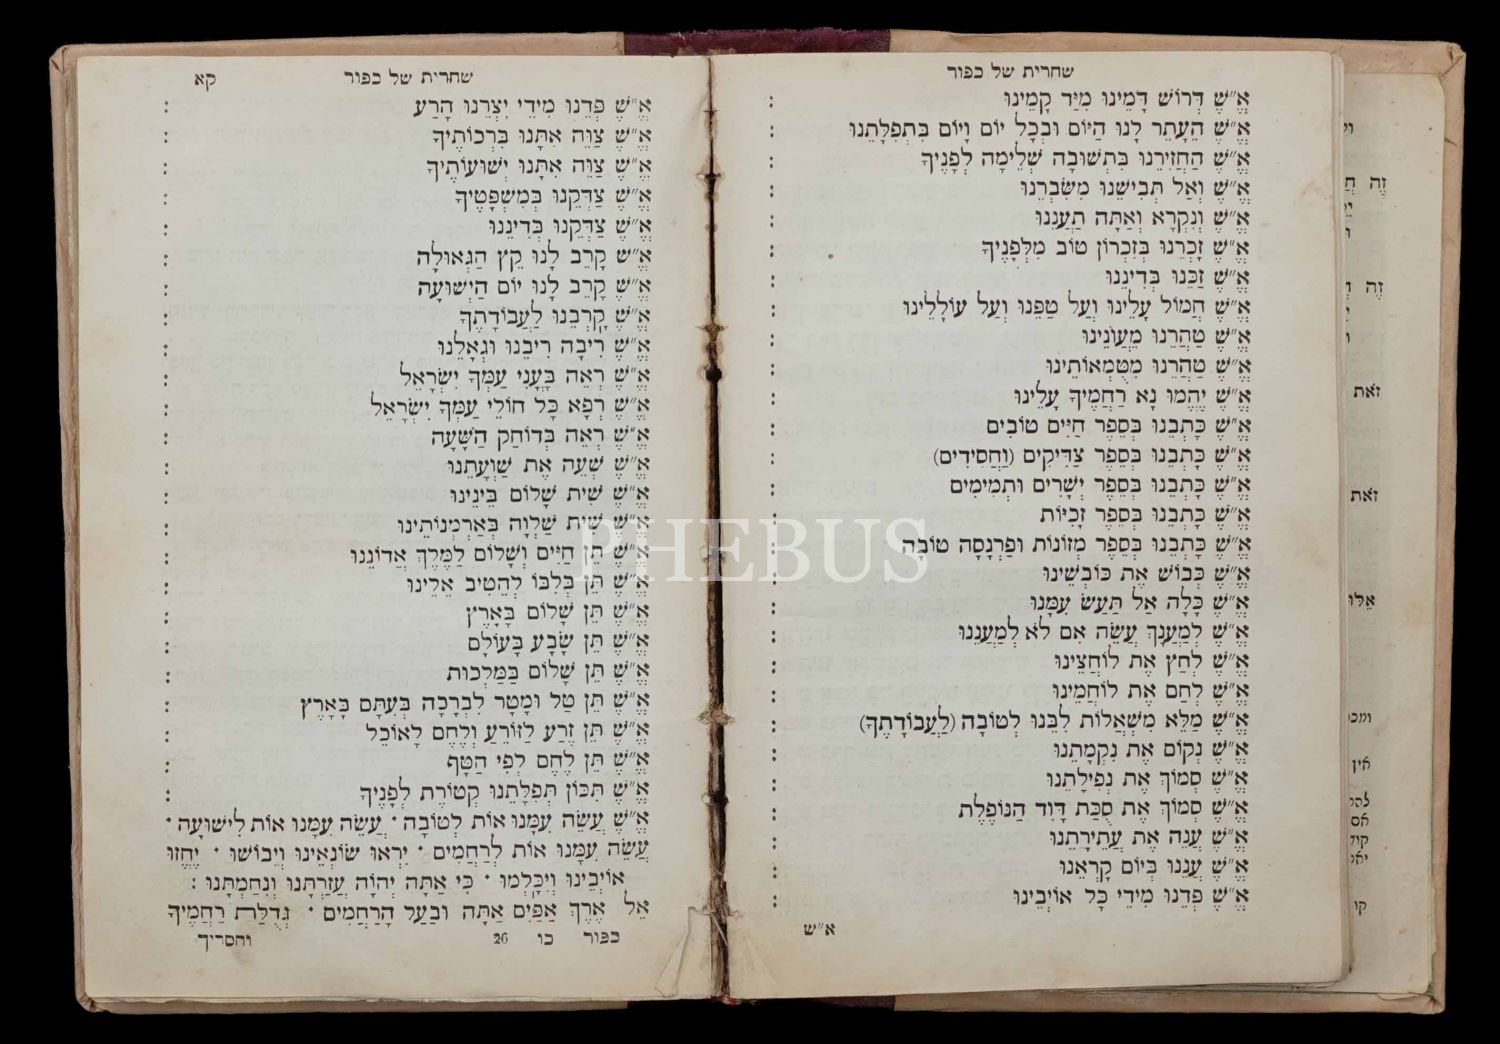 שחרית של כפור
אֱ״שֶׁ דְּרוֹשׁ דָּמֵינוּ מִיַּד קָמֵינוּ :
אֱ״שֶׁ הֵעָתֵר לָנוּ הַיּוֹם וּבְכָל יוֹם וָיוֹם בִּתְפִלָּתֵנוּ :
אֱ״שֶׁ הַחֲזִירֵנוּ בִּתְשׁוּבָה שְׁלֵימָה לְפָנֶיךָ :
אֱ״שֶׁ וְאַל תְּבִישֵׁנוּ מִשִּׂבְרֵנוּ :
אֱ״שֶׁ וְנִקְרָא וְאַתָּה תַעֲנֵנוּ :
אֱ״שֶׁ זָכְרֵנוּ בְּזִכְרוֹן טוֹב מִלְּפָנֶיךָ :
אֱ״שֶׁ זַכֵּנוּ בְּדִינֵנוּ :
אֱ״שֶׁ חֲמוֹל עָלֵינוּ וְעַל טַפֵּנוּ וְעַל עוֹלָלֵינוּ :
אֱ״שֶׁ טַהֲרֵנוּ מֵעֲוֹנֵינוּ :
אֱ״שֶׁ טַהֲרֵנוּ מִטֻּמְאוֹתֵינוּ :
אֱ״שֶׁ יֶהֱמוּ נָא רַחֲמֶיךָ עָלֵינוּ :
אֱ״שֶׁ כָּתְבֵנוּ בְּסֵפֶר חַיִּים טוֹבִים :
אֱ״שֶׁ כָּתְבֵנוּ בְּסֵפֶר צַדִּיקִים (וַחֲסִידִים) :
אֱ״שֶׁ כָּתְבֵנוּ בְּסֵפֶר יְשָׁרִים וּתְמִימִים :
אֱ״שֶׁ כָּתְבֵנוּ בְּסֵפֶר זָכִיּוֹת :
אֱ״שֶׁ כָּתְבֵנוּ בְּסֵפֶר מְזוֹנוֹת וּפַרְנָסָה טוֹבָה :
אֱ״שֶׁ כְּבוֹשׁ אֶת כּוֹבְשֵׁינוּ :
אֱ״שֶׁ כָּלָה אַל תַּעַשׂ עִמָּנוּ :
אֱ״שֶׁ לְמַעֲנָךְ עֲשֵׂה אִם לֹא לְמַעֲנֵנוּ :
אֱ״שֶׁ לְחַץ אֶת לוֹחֲצֵינוּ :
אֱ״שֶׁ לְחַם אֶת לוֹחֲמֵינוּ :
אֱ״שֶׁ מַלֵּא מִשְׁאֲלוֹת לִבֵּנוּ לְטוֹבָה (לַעֲבוֹדָתֶךָ) :
אֱ״שֶׁ נְקוֹם אֶת נִקְמָתֵנוּ :
אֱ״שֶׁ סְמוֹךְ אֶת נְפִילָתֵנוּ :
אֱ״שֶׁ סְמוֹךְ אֶת סֻכַּת דָּוִד הַנּוֹפֶלֶת :
אֱ״שֶׁ עֲנֵה אֶת עֲתִירָתֵנוּ :
אֱ״שֶׁ עֲנֵנוּ בְּיוֹם קָרְאֵנוּ :
אֱ״שֶׁ פְּדֵנוּ מִידֵי כָּל אוֹיְבֵינוּ :
א״ש
שחרית של כפור קא
אֱ״שֶׁ פְּדֵנוּ מִידֵי יִצְרֵנוּ הָרַע :
אֱ״שֶׁ צַוֵּה אִתָּנוּ בִּרְכוֹתֶיךָ :
אֱ״שֶׁ צַוֵּה אִתָּנוּ יְשׁוּעוֹתֶיךָ :
אֱ״שֶׁ צַדְּקֵנוּ בְּמִשְׁפָּטֶיךָ :
אֱ״שֶׁ צַדְּקֵנוּ בְּדִינֵנוּ :
אֱ״שֶׁ קָרֵב לָנוּ קֵץ הַגְּאוּלָּה :
אֱ״שֶׁ קָרֵב לָנוּ יוֹם הַיְשׁוּעָה :
אֱ״שֶׁ קָרְבֵנוּ לַעֲבוֹדָתֶךָ :
אֱ״שֶׁ רִיבָה רִיבֵנוּ וּגְאָלֵנוּ :
אֱ״שֶׁ רְאֵה בָּעֳנִי עַמְּךָ יִשְׂרָאֵל :
אֱ״שֶׁ רְפָא כָּל חוֹלֵי עַמְּךָ יִשְׂרָאֵל :
אֱ״שֶׁ רְאֵה בְּדוֹחַק הַשָּׁעָה :
אֱ״שֶׁ שְׁעֵה אֶת שַׁוְעָתֵנוּ :
אֱ״שֶׁ שִׁית שָׁלוֹם בֵּינֵינוּ :
אֱ״שֶׁ שִׁית שַׁלְוָה בְּאַרְמְנוֹתֵינוּ :
אֱ״שֶׁ תֵּן חַיִּים וְשָׁלוֹם לַמֶּלֶךְ אֲדוֹנֵנוּ :
אֱ״שֶׁ תֵּן בְּלִבּוֹ לְהֵטִיב אֵלֵינוּ :
אֱ״שֶׁ תֵּן שָׁלוֹם בָּאָרֶץ :
אֱ״שֶׁ תֵּן שָׂבָע בָּעוֹלָם :
אֱ״שֶׁ תֵּן שָׁלוֹם בַּמַּלְכוּת :
אֱ״שֶׁ תֵּן טַל וּמָטָר לִבְרָכָה בְּעִתָּם בָּאָרֶץ :
אֱ״שֶׁ תֵּן זֶרַע לַזּוֹרֵעַ וְלֶחֶם לָאוֹכֵל :
אֱ״שֶׁ תֵּן לֶחֶם לְפִי הַטָּף :
אֱ״שֶׁ תִּכּוֹן תְּפִלָּתֵנוּ קְטוֹרֶת לְפָנֶיךָ :
אֱ״שֶׁ עֲשֵׂה עִמָּנוּ אוֹת לְטוֹבָה · עֲשֵׂה עִמָּנוּ אוֹת לִישׁוּעָה ·
עֲשֵׂה עִמָּנוּ אוֹת לְרַחֲמִים · יִרְאוּ שׂוֹנְאֵינוּ וְיֵבוֹשׁוּ · יֶחֱזוּ
אוֹיְבֵינוּ וְיִכָּלְמוּ · כִּי אַתָּה יְהֹוָה עֲזַרְתָּנוּ וְנִחַמְתָּנוּ :
אֵל אֶרֶךְ אַפַּיִם אַתָּה וּבַעַל הָרַחֲמִים · גְּדֻלַּת רַחֲמֶיךָ
כפור כו 26 וחסדיך
זֶה
זֶה
זֹאת
זֹאת
אֵלּוּ
אין
PHEBUS